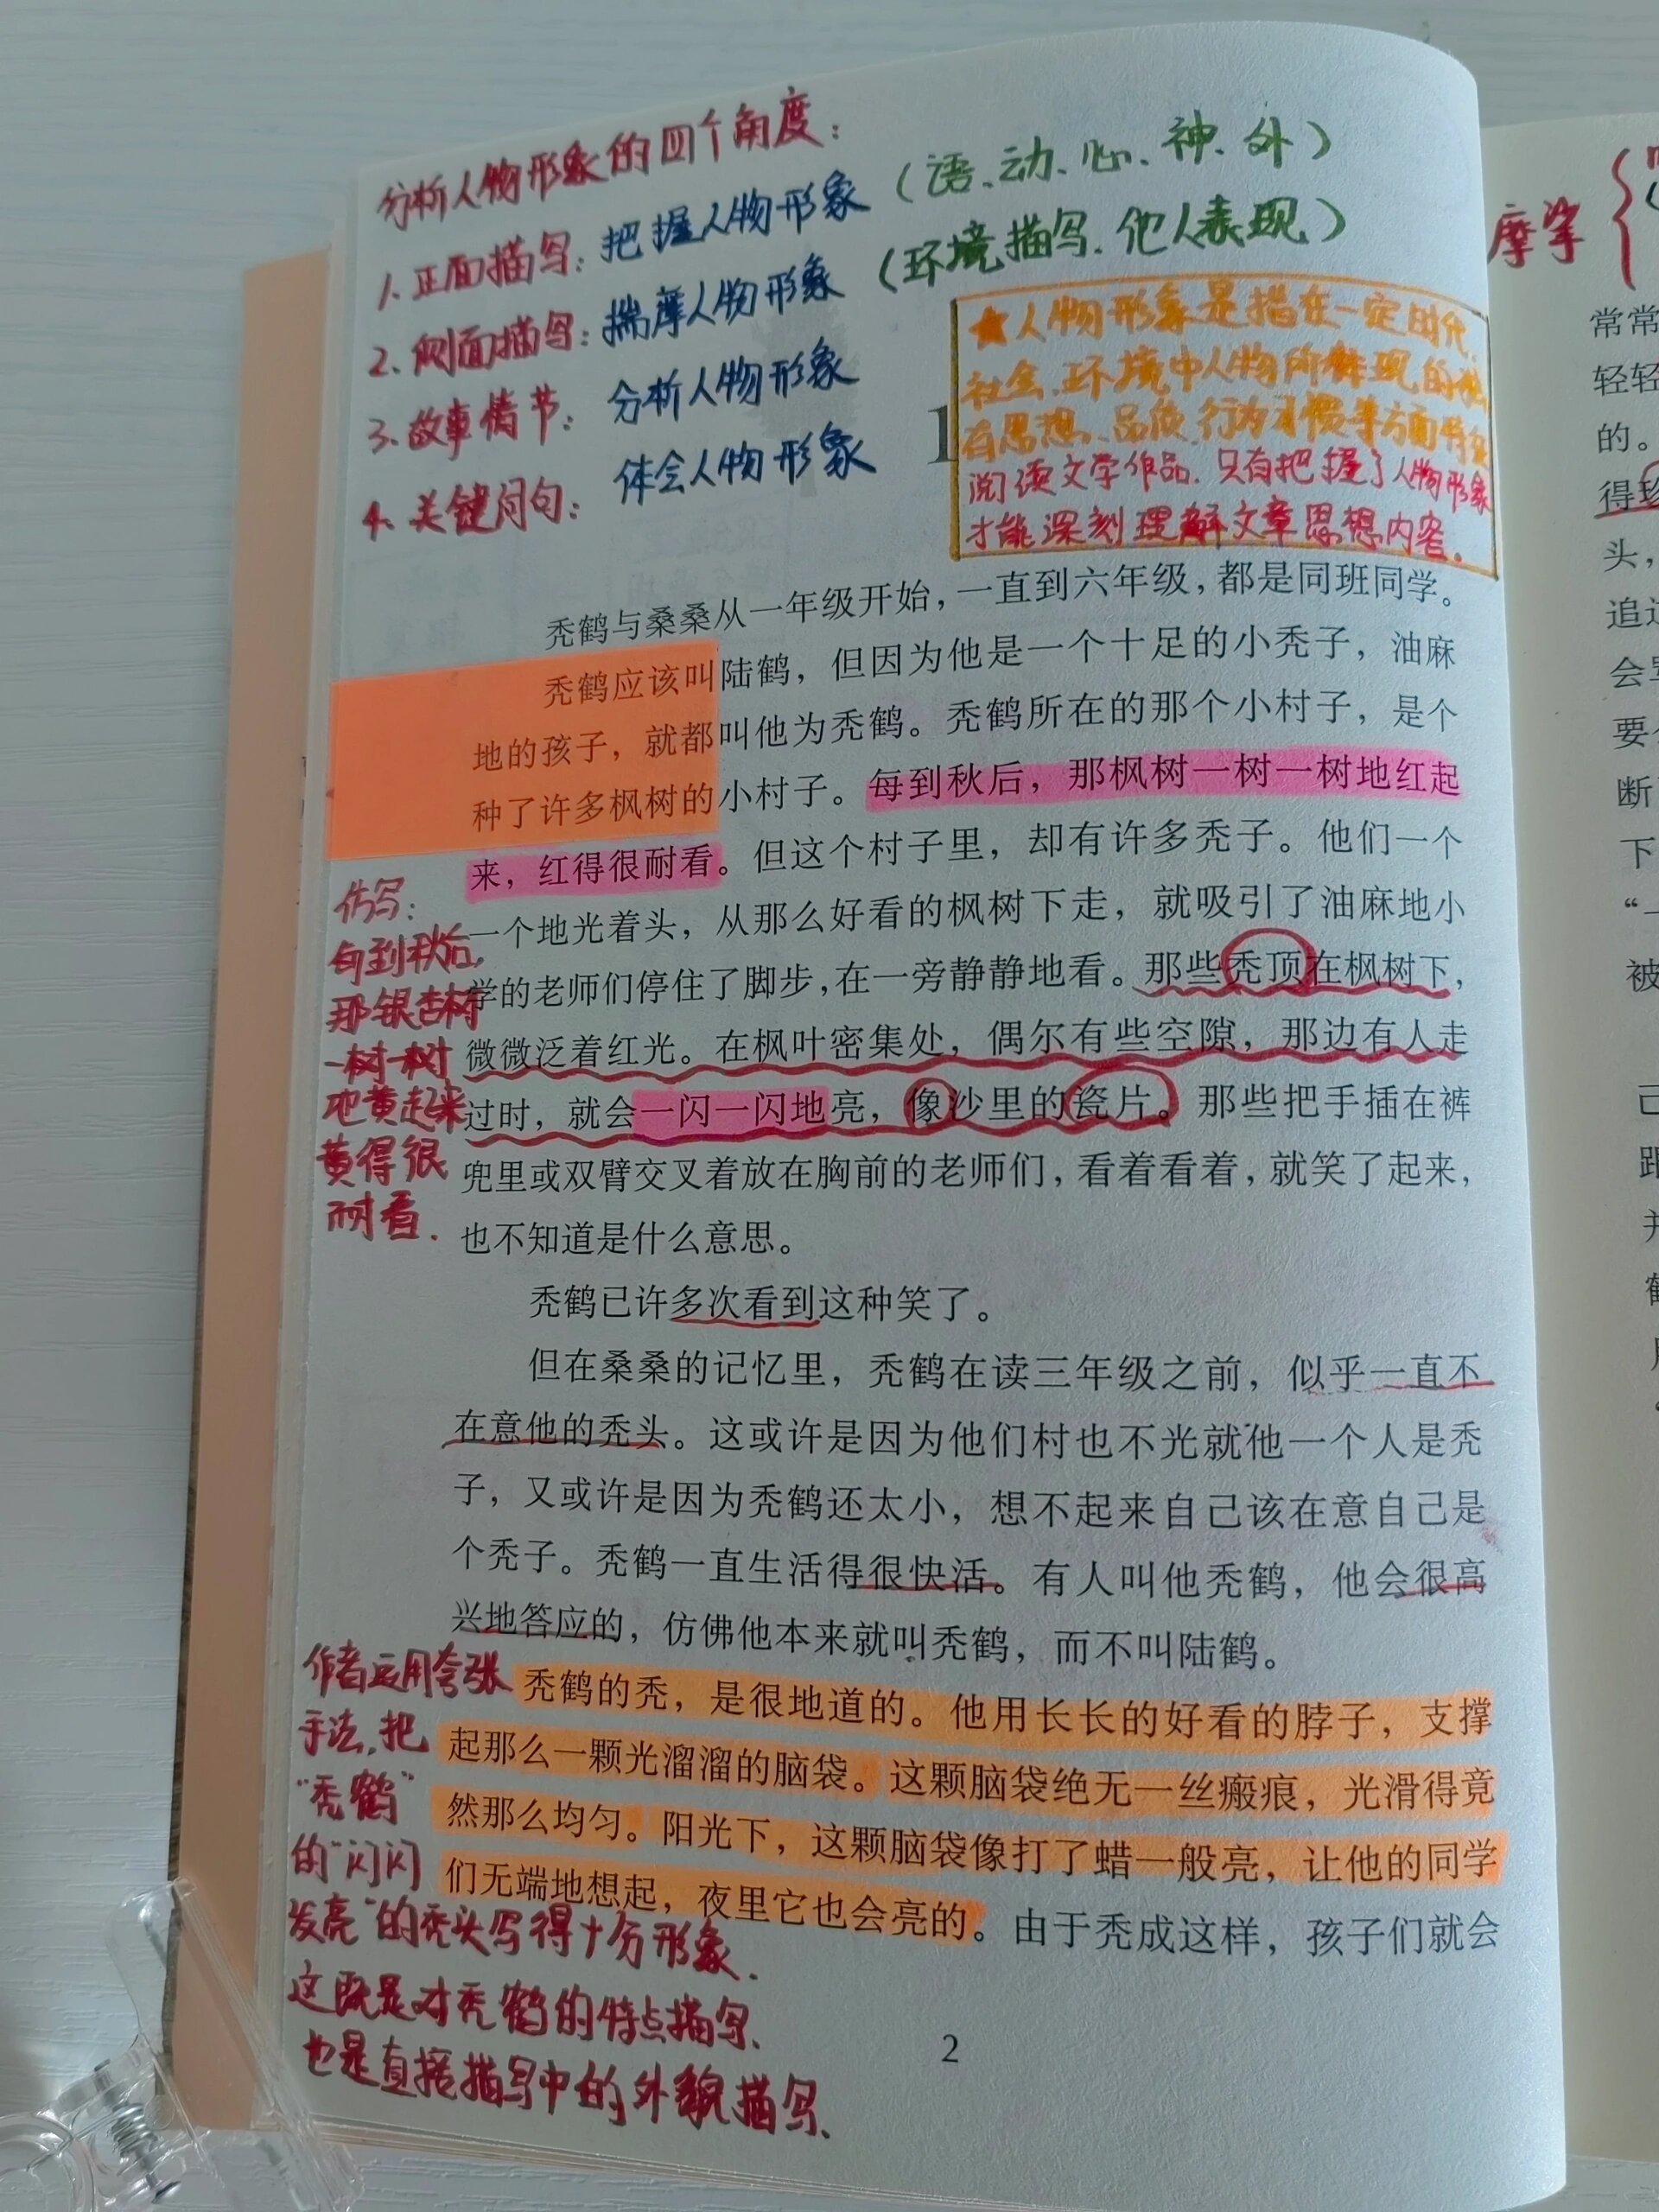 分析人物形象的四个角度：
1、正面描写：把握人物形象（语、动、心、神、外）
2、侧面描写：揣摩人物形象（环境描写、他人表现）
3、故事情节：分析人物形象
4、关键问句：体会人物形象
★人物形象是指在一定时代、
社会、环境中人物所展现的
有思想、品质、行为习惯等方面
阅读文学作品，只有把握了人物形象
才能深刻理解文章思想内容。
1
秃鹤与桑桑从一年级开始，一直到六年级，都是同班同学。
秃鹤应该叫陆鹤，但因为他是一个十足的小秃子，油麻
地的孩子，就都叫他为秃鹤。秃鹤所在的那个小村子，是个
种了许多枫树的小村子。每到秋后，那枫树一树一树地红起
来，红得很耐看。但这个村子里，却有许多秃子。他们一个
一个地光着头，从那么好看的枫树下走，就吸引了油麻地小
学的老师们停住了脚步，在一旁静静地看。那些秃顶在枫树下，
微微泛着红光。在枫叶密集处，偶尔有些空隙，那边有人走
过时，就会一闪一闪地亮，像沙里的瓷片。那些把手插在裤
兜里或双臂交叉着放在胸前的老师们，看着看着，就笑了起来，
也不知道是什么意思。
秃鹤已许多次看到这种笑了。
但在桑桑的记忆里，秃鹤在读三年级之前，似乎一直不
在意他的秃头。这或许是因为他们村也不光就他一个人是秃
子，又或许是因为秃鹤还太小，想不起来自己该在意自己是
个秃子。秃鹤一直生活得很快活。有人叫他秃鹤，他会很高
兴地答应的，仿佛他本来就叫秃鹤，而不叫陆鹤。
秃鹤的秃，是很地道的。他用长长的好看的脖子，支撑
起那么一颗光溜溜的脑袋。这颗脑袋绝无一丝瘢痕，光滑得竟
然那么均匀。阳光下，这颗脑袋像打了蜡一般亮，让他的同学
们无端地想起，夜里它也会亮的。由于秃成这样，孩子们就会
仿写：
每到秋后，
那银杏树
一树一树
地黄起来
黄得很
耐看.
作者运用夸张
手法，把
“秃鹤”
的“闪闪
发亮”的秃头写得十分形象.
这既是对秃鹤的特点描写、
也是直接描写中的外貌描写、
2
常常
轻轻
的。
得珍
头，
追
会
要
断
下
“一
被
己
跟